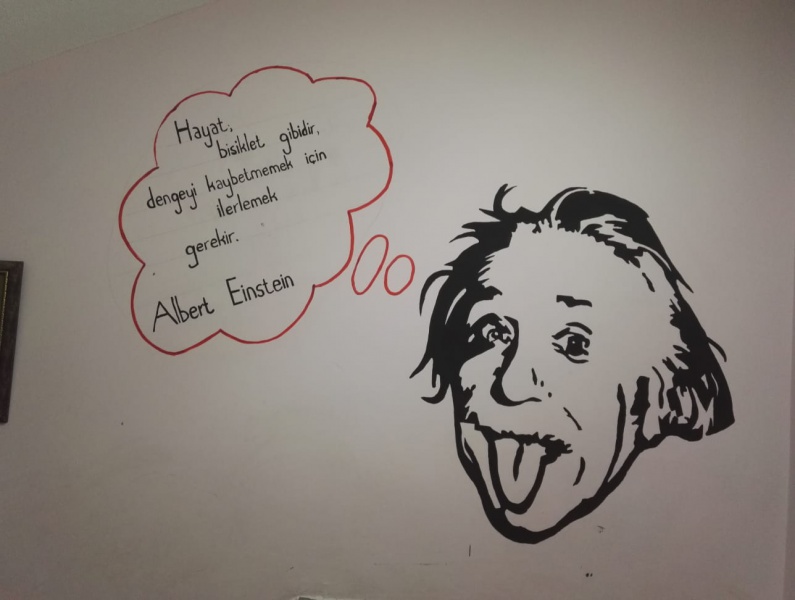 Hayat,
bisiklet gibidir,
dengeyi kaybetmemek için
ilerlemek
gerekir.
Albert Einstein